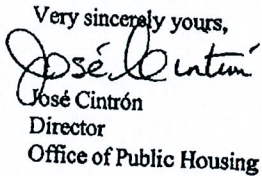 Very sincerely yours,
José Cintrón
José Cintrón
Director
Office of Public Housing